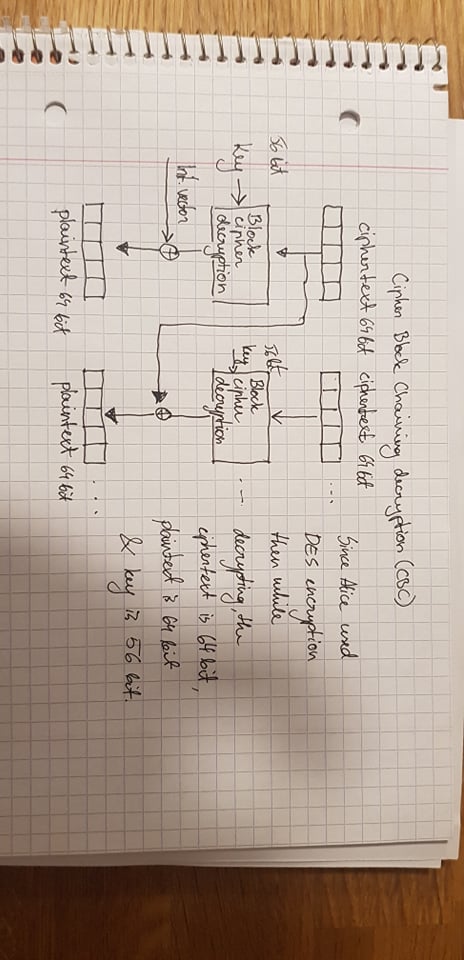 Cipher Block Chaining decryption (CBC)
ciphertext 64 bit ciphertext 64 bit
...
56 bit
Key
Block
cipher
decryption
56 bit
key
Block
cipher
decryption
...
Int. vector
+
+
...
plaintext 64 bit
plaintext 64 bit
Since Alice used
DES encryption
then while
decrypting, the
ciphertext is 64 bit,
plaintext is 64 bit
& key is 56 bit.